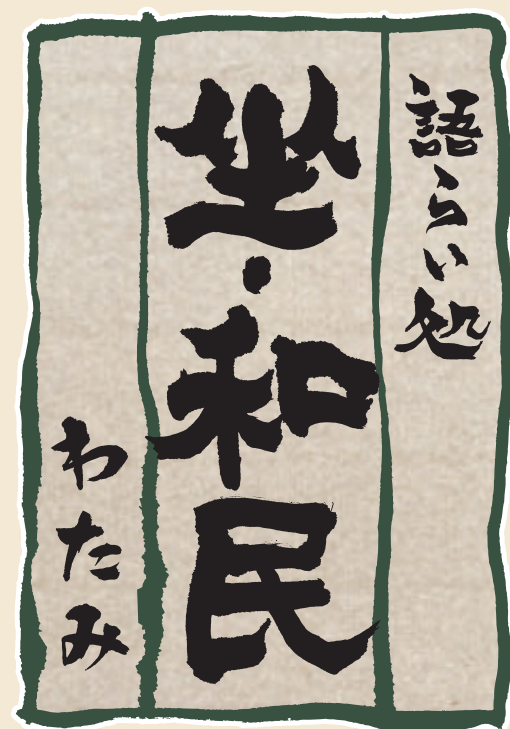 語らい処
坐・和民
わたみ